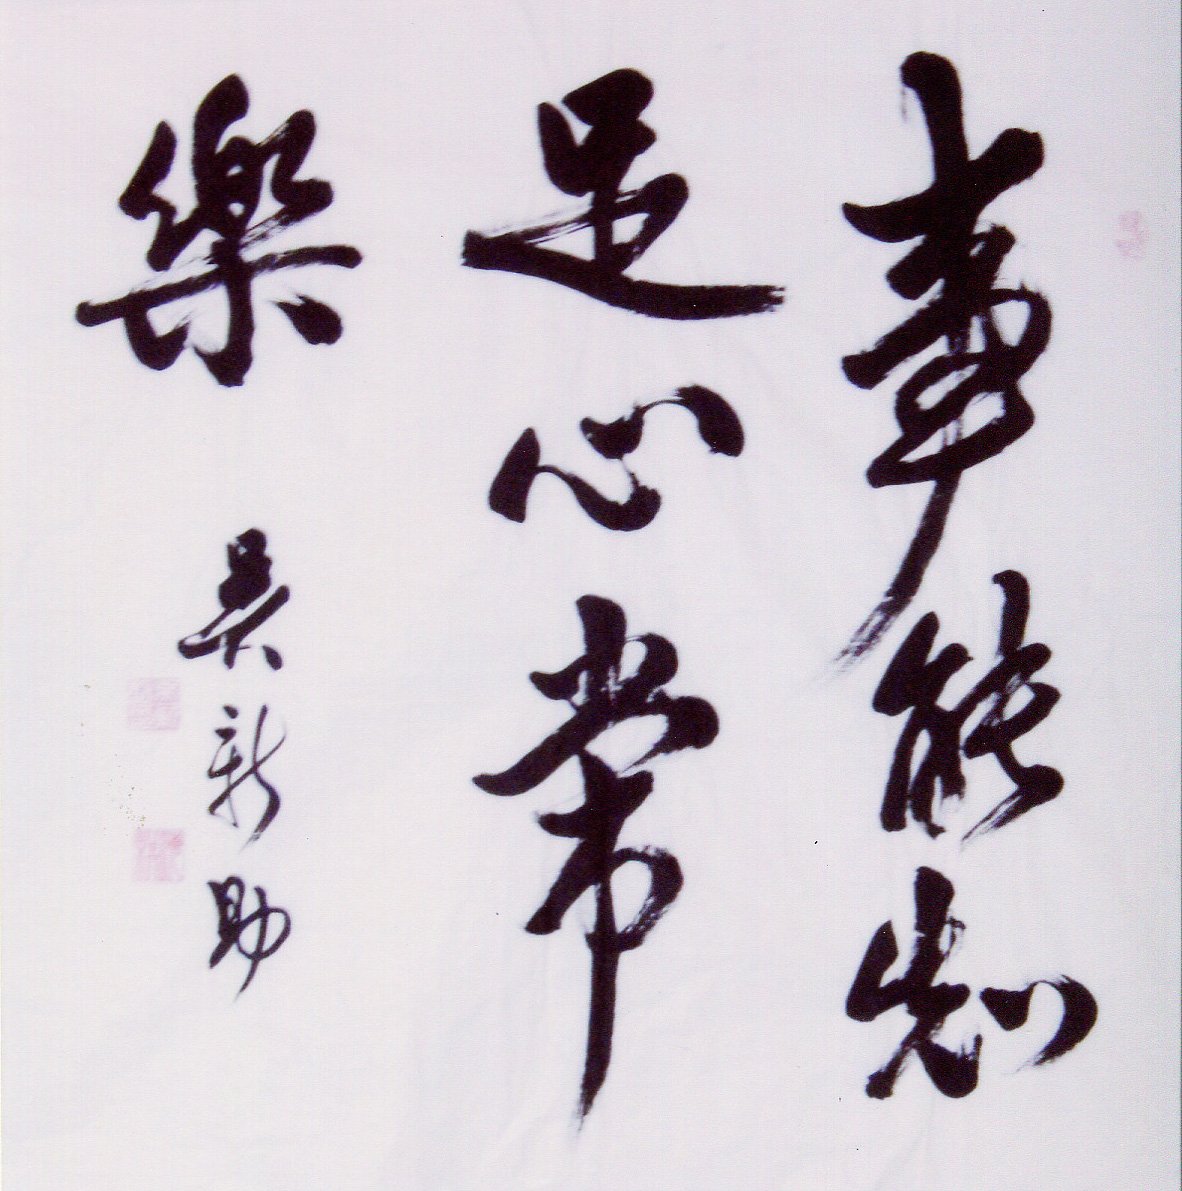 事能知
足心常
樂
吳新助